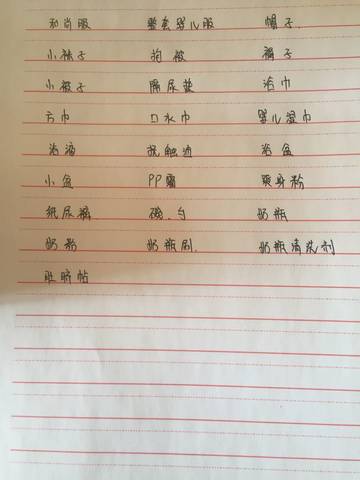 和尚服 整套婴儿服 帽子
小袜子 抱被 裤子
小被子 隔尿垫 浴巾
方巾 口水巾 婴儿湿巾
浴液 抚触油 浴盆
小盆 PP霜 爽身粉
纸尿裤 碗、勺 奶瓶
奶粉 奶瓶刷 奶瓶清洗剂
肚脐帖